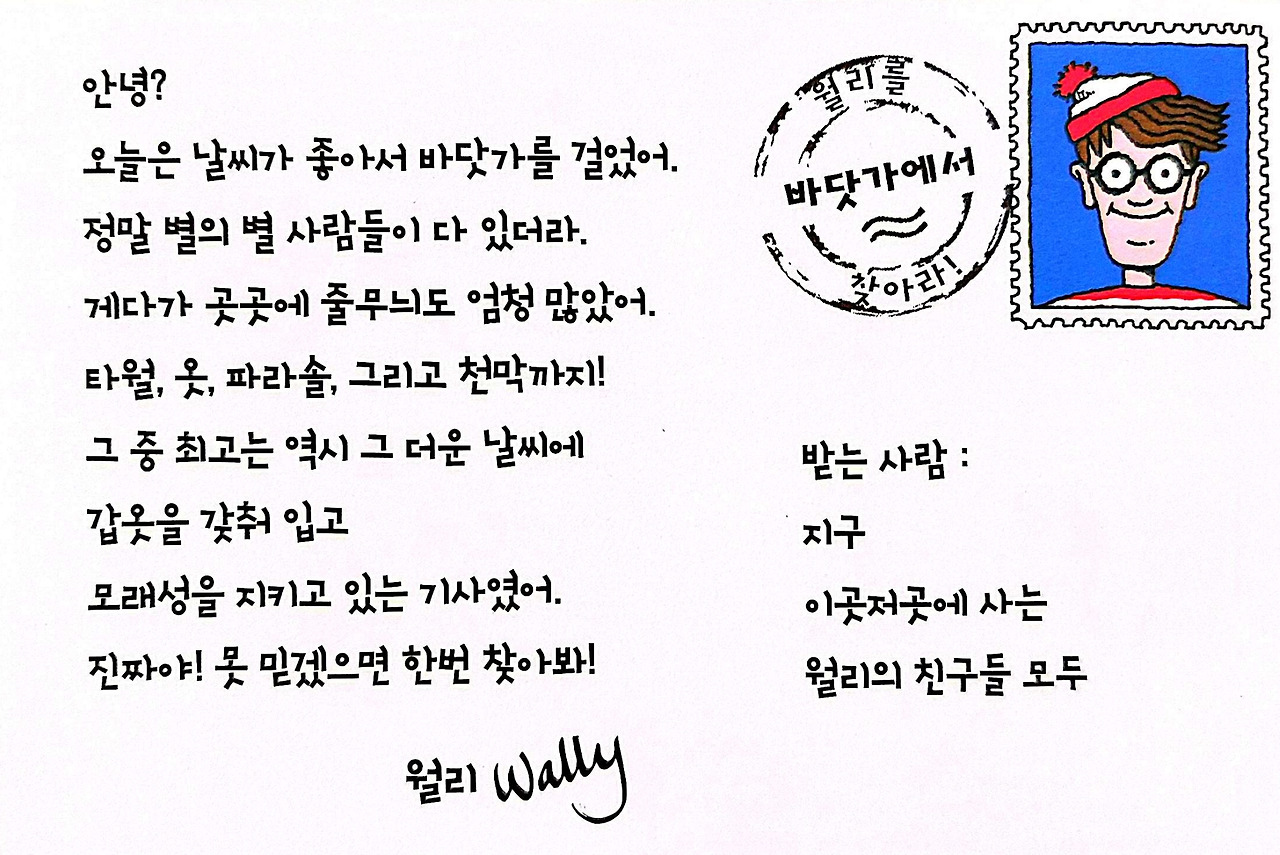 안녕?
오늘은 날씨가 좋아서 바닷가를 걸었어.
정말 별의 별 사람들이 다 있더라.
게다가 곳곳에 줄무늬도 엄청 많았어.
타월, 옷, 파라솔, 그리고 천막까지!
그 중 최고는 역시 그 더운 날씨에
갑옷을 갖춰 입고
모래성을 지키고 있는 기사였어.
진짜야! 못 믿겠으면 한번 찾아봐!
월리 Wally
월리를
바닷가에서
찾아라!
받는 사람 :
지구
이곳저곳에 사는
월리의 친구들 모두